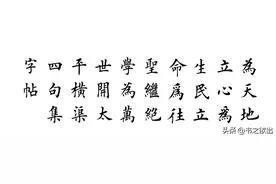 為天地
立心為
生民立
命為往
聖繼絕
學為萬
世開太
平橫渠
四句集
字帖
头条 @书之欲出